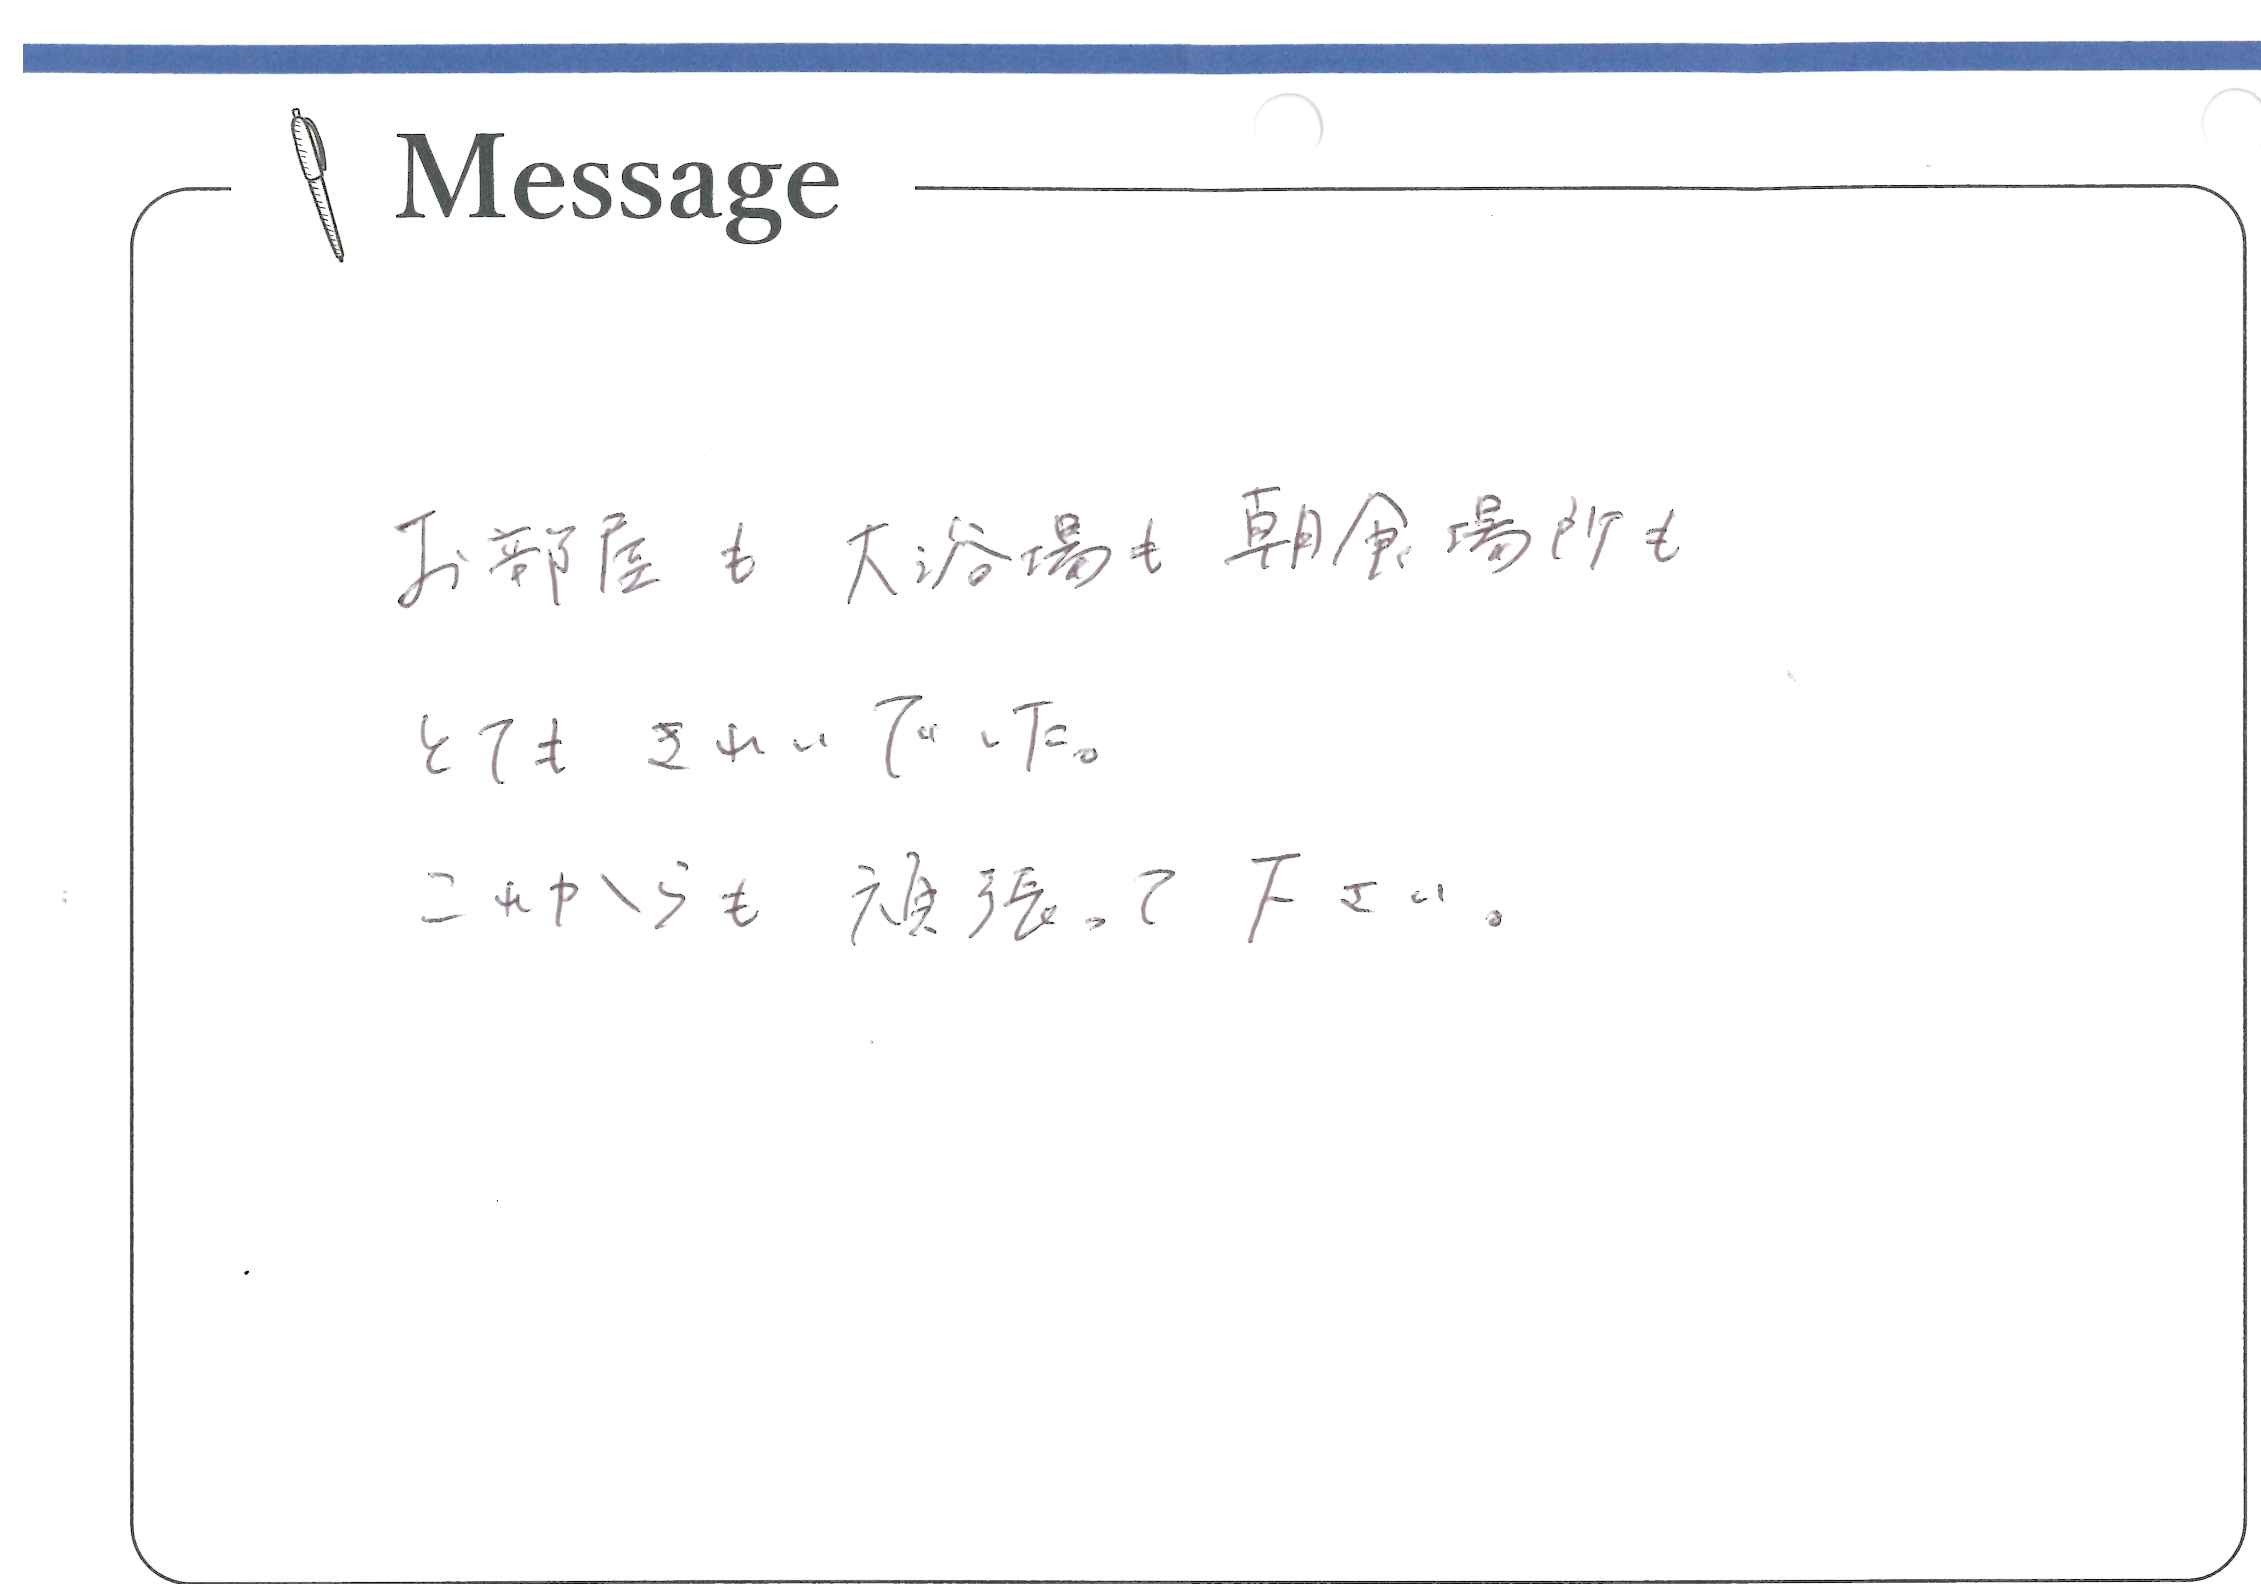 Message
お部屋も 大浴場も 朝食場所も
とても きれいでした。
これからも 頑張って 下さい。